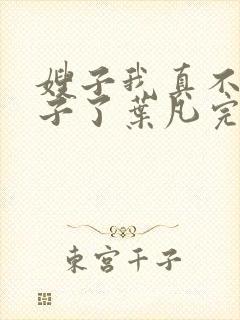 嫂子我真不
子了葉凡完
東宮千子